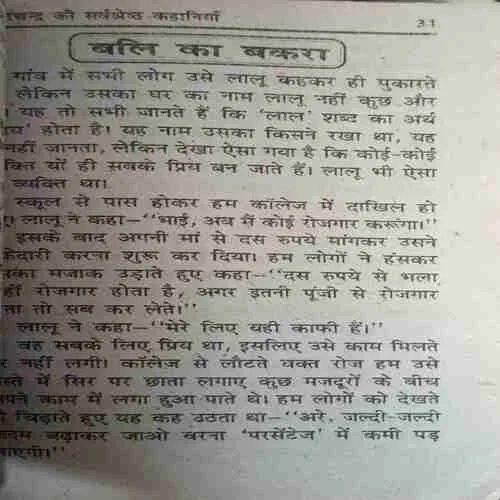 चन्द्र की सर्वश्रेष्ठ कहानियाँ 31
बलि का बकरा
गांव में सभी लोग उसे लालू कहकर ही पुकारते
लेकिन उसका घर का नाम लालू नहीं कुछ और
। यह तो सभी जानते हैं कि ‘लाल’ शब्द का अर्थ
होता है। यह नाम उसका किसने रखा था, यह
नहीं जानता, लेकिन देखा ऐसा गया है कि कोई-कोई
क्ति यों ही सबके प्रिय बन जाते हैं। लालू भी ऐसा
व्यक्ति था।
स्कूल से पास होकर हम कॉलेज में दाखिल हो
लालू ने कहा—‘‘भाई, अब मैं कोई रोजगार करूंगा।’’
इसके बाद अपनी मां से दस रुपये मांगकर उसने
केदारी करना शुरू कर दिया। हम लोगों ने हंसकर
का मजाक उड़ाते हुए कहा—‘‘दस रुपये से भला
हीं रोजगार होता है, अगर इतनी पूंजी से रोजगार
ता तो सब कर लेते।’’
लालू ने कहा—‘‘मेरे लिए यही काफी हैं।’’
वह सबके लिए प्रिय था, इसलिए उसे काम मिलते
र नहीं लगी। कॉलेज से लौटते वक्त रोज हम उसे
स्ते में सिर पर छाता लगाए कुछ मजदूरों के बीच
पने काम में लगा हुआ पाते थे। हम लोगों को देखते
चिड़ाते हुए यह कह उठता था—‘‘अरे, जल्दी-जल्दी
दम बढ़ाकर जाओ वरना ‘परसेंटेज’ में कमी पड़
ाएगी।’’